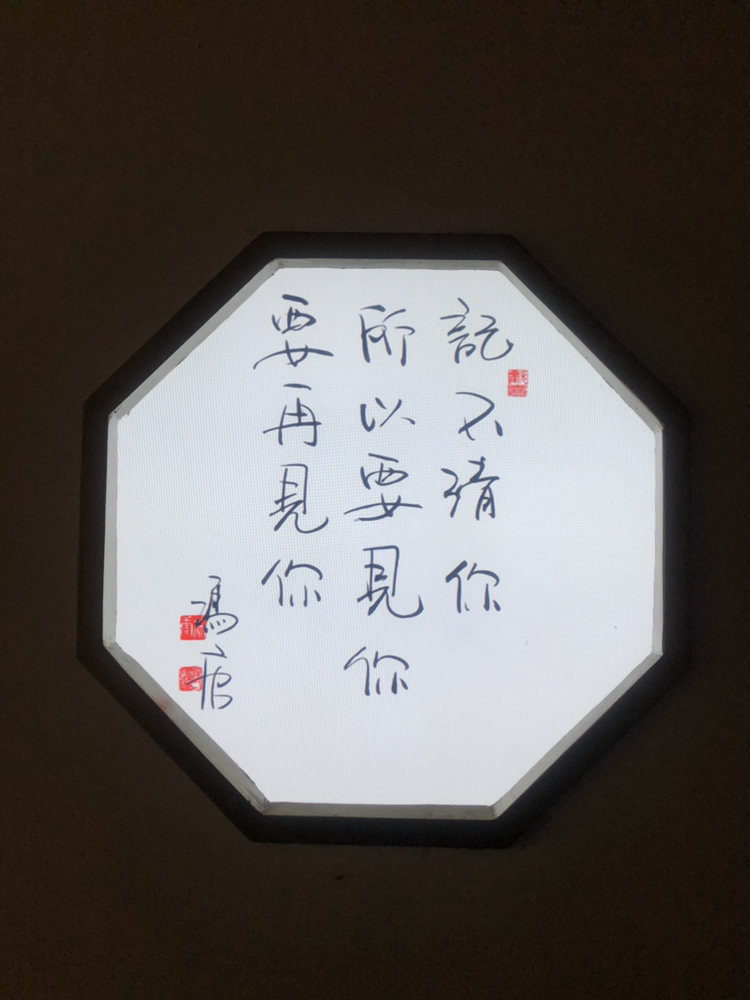 記不清你
所以要見你
要再見你
馮唐